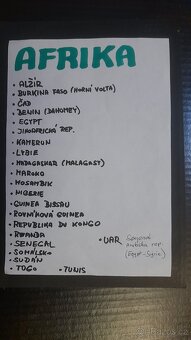 AFRIKA
• ALŽÍR
• BURKINA FASO (HORNÍ VOLTA)
• ČAD
• BENIN (DAHOMEY)
• EGYPT
• JIHOAFRICKÁ REP.
• KAMERUN
• LYBIE
• MADAGASKAR (MALAGASY)
• MAROKO
• MOSAMBIK
• NIGERIE
• GUINEA BISSAU
• ROVNÍKOVÁ GUINEA
• REPUBLIKA DU KONGO
• RWANDA
• SENEGAL
• SOMÁLSKO
• SUDÁN
• TOGO • TUNIS
• UAR Spojená arabská rep.
(Egypt-Syrie)